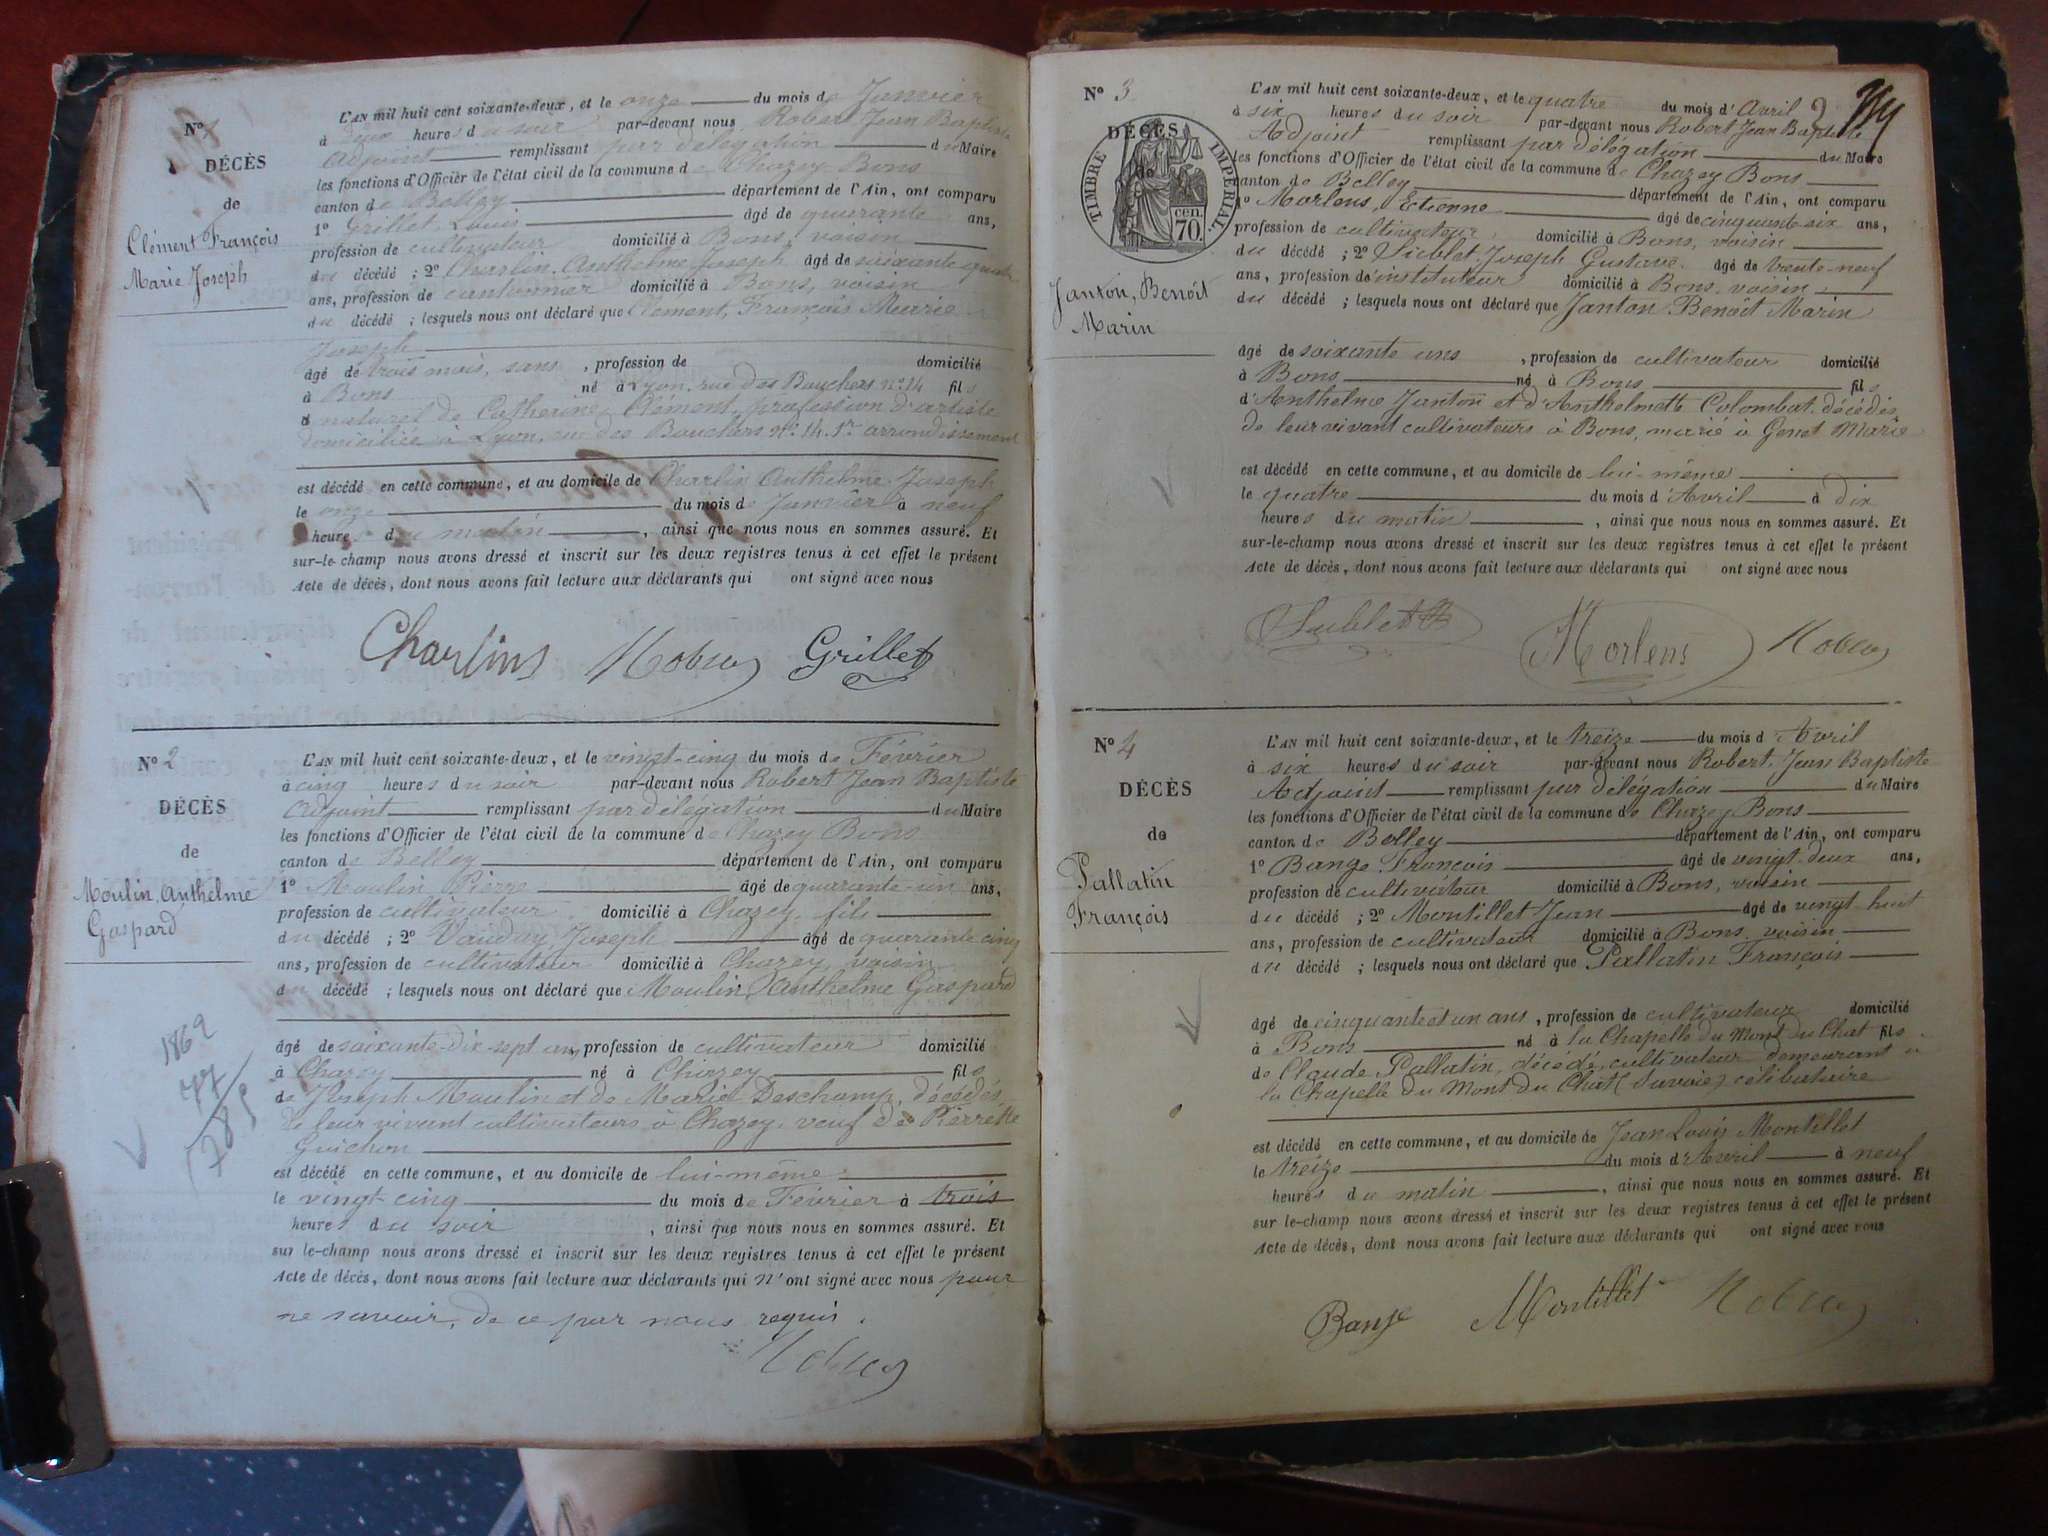 No 1
DÉCÈS
de
Clément François
Marie Joseph
L'AN mil huit cent soixante-deux, et le onze du mois de Janvier
à deux heures du soir par-devant nous Robert Jean Baptiste
Adjoint remplissant par délégation du Maire
les fonctions d'Officier de l'état civil de la commune de Chazey-Bons
canton de Belley département de l'Ain, ont comparu
1o Grillet, Louis âgé de quarante ans,
profession de cultivateur domicilié à Bons, voisin
du décédé ; 2o Charlin, Anthelme Joseph âgé de soixante quatre
ans, profession de cantonnier domicilié à Bons, voisin
du décédé ; lesquels nous ont déclaré que Clément, François Marie
Joseph
âgé de trois mois, sans , profession de domicilié
à Bons né à Lyon, rue des Bouchers no 14 fils
naturel de Catherine Clément, profession d'artiste
domiciliée à Lyon, rue des Bouchers No 14. 1er arrondissement
est décédé en cette commune, et au domicile de Charlin Anthelme Joseph
le onze du mois de Janvier à neuf
heures du matin , ainsi que nous nous en sommes assuré. Et
sur-le-champ nous avons dressé et inscrit sur les deux registres tenus à cet effet le présent
Acte de décès, dont nous avons fait lecture aux déclarants qui ont signé avec nous
Charlins Robert Grillet
No 2
DÉCÈS
de
Moulin, Anthelme
Gaspard
1862
77
1785
L'AN mil huit cent soixante-deux, et le vingt-cinq du mois de Février
à cinq heures du soir par-devant nous Robert Jean Baptiste
Adjoint remplissant par délégation du Maire
les fonctions d'Officier de l'état civil de la commune de Chazey Bons
canton de Belley département de l'Ain, ont comparu
1o Moulin, Pierre âgé de quarante-un ans,
profession de cultivateur domicilié à Chazey, fils
du décédé ; 2o Vauday, Joseph âgé de quarante cinq
ans, profession de cultivateur domicilié à Chazey, voisin
du décédé ; lesquels nous ont déclaré que Moulin, Anthelme Gaspard
âgé de soixante-dix-sept ans, profession de cultivateur domicilié
à Chazey né à Chazey fils
de Joseph Moulin et de Marie Deschamp, décédés,
de leur vivant cultivateurs à Chazey, veuf de Pierrette
Guichon
est décédé en cette commune, et au domicile de lui-même
le vingt-cinq du mois de Février à trois
heures du soir , ainsi que nous nous en sommes assuré. Et
sur le-champ nous avons dressé et inscrit sur les deux registres tenus à cet effet le présent
Acte de décès, dont nous avons fait lecture aux déclarants qui n'ont signé avec nous pour
ne savoir, de ce par nous requis.
Robert
2
No 3
DÉCÈS
de
TIMBRE IMPÉRIAL
70. cen.
Janton, Benoît
Marin
L'AN mil huit cent soixante-deux, et le quatre du mois d'Avril
à six heures du soir par-devant nous Robert Jean Baptiste
Adjoint remplissant par délégation du Maire
les fonctions d'Officier de l'état civil de la commune de Chazey Bons
canton de Belley département de l'Ain, ont comparu
1o Morlens, Etienne âgé de cinquante-six ans,
profession de cultivateur, domicilié à Bons, voisin
du décédé ; 2o Sublet, Joseph Gustave, âgé de trente-neuf
ans, profession d'instituteur domicilié à Bons, voisin
du décédé ; lesquels nous ont déclaré que Janton Benoît Marin
âgé de soixante ans , profession de cultivateur domicilié
à Bons né à Bons fils
d'Anthelme Janton et d'Anthelmette Colombat, décédés,
de leur vivant cultivateurs à Bons, marié à Genet Marie
est décédé en cette commune, et au domicile de lui-même
le quatre du mois d'Avril à dix
heures du matin , ainsi que nous nous en sommes assuré. Et
sur-le-champ nous avons dressé et inscrit sur les deux registres tenus à cet effet le présent
Acte de décès, dont nous avons fait lecture aux déclarants qui ont signé avec nous
Sublet Morlens Robert
No 4
DÉCÈS
de
Pallatin
François
L'AN mil huit cent soixante-deux, et le treize du mois d'Avril
à six heures du soir par-devant nous Robert, Jean Baptiste
Adjoint remplissant par délégation du Maire
les fonctions d'Officier de l'état civil de la commune de Chazey Bons
canton de Belley département de l'Ain, ont comparu
1o Bange François âgé de vingt-deux ans,
profession de cultivateur domicilié à Bons, voisin
du décédé ; 2o Montillet Jean âgé de vingt-huit
ans, profession de cultivateur domicilié à Bons, voisin
du décédé ; lesquels nous ont déclaré que Pallatin François
âgé de cinquante et un ans , profession de cultivateur domicilié
à Bons né à la Chapelle du Mont du Chat fils
de Claude Pallatin, décédé, cultivateur demeurant à
la Chapelle du Mont du Chat (Savoie) célibataire
est décédé en cette commune, et au domicile de Jean Louis Montillet
le treize du mois d'Avril à neuf
heures du matin , ainsi que nous nous en sommes assuré. Et
sur le-champ nous avons dressé et inscrit sur les deux registres tenus à cet effet le présent
Acte de décès, dont nous avons fait lecture aux déclarants qui ont signé avec nous
Bange Montillet Robert